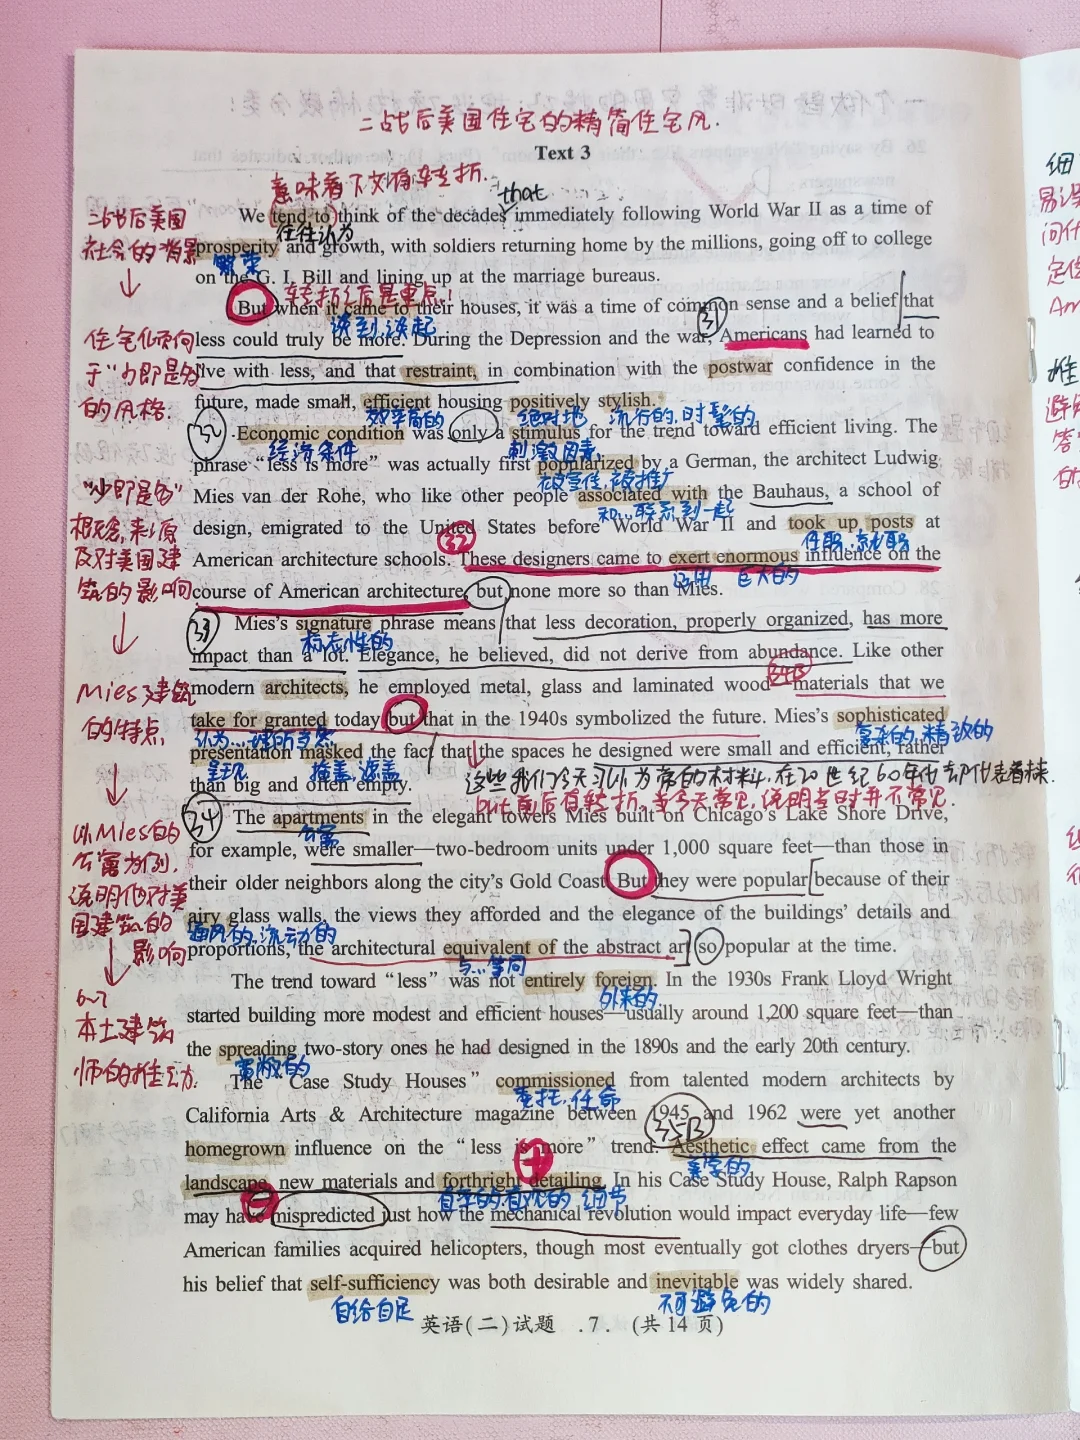 二战后美国住宅的精简住宅风.
Text 3
意味着下文有转折.
that
We tend to think of the decades immediately following World War II as a time of
往往认为
prosperity and growth, with soldiers returning home by the millions, going off to college
繁荣
on the G. I. Bill and lining up at the marriage bureaus.
转折之后是重点!
But when it came to their houses, it was a time of common sense and a belief that
谈到,谈起
31
less could truly be more. During the Depression and the war, Americans had learned to
live with less, and that restraint, in combination with the postwar confidence in the
future, made small, efficient housing positively stylish.
效率高的 绝对地 流行的,时髦的
32
Economic condition was only a stimulus for the trend toward efficient living. The
经济条件 刺激因素
phrase “less is more” was actually first popularized by a German, the architect Ludwig
被宣传,被推广
Mies van der Rohe, who like other people associated with the Bauhaus, a school of
和...联系到一起
design, emigrated to the United States before World War II and took up posts at
32 任职,就职
American architecture schools. These designers came to exert enormous influence on the
运用 巨大的
course of American architecture, but none more so than Mies.
33
Mies’s signature phrase means that less decoration, properly organized, has more
标志性的
impact than a lot. Elegance, he believed, did not derive from abundance. Like other
34B
modern architects, he employed metal, glass and laminated wood—materials that we
take for granted today but that in the 1940s symbolized the future. Mies’s sophisticated
认为...理所当然 复杂的,精致的
presentation masked the fact that the spaces he designed were small and efficient, rather
呈现 掩盖,遮盖
than big and often empty.
这些我们今天习以为常的材料,在20世纪60年代却代表着未来.
but前后有转折,或今天常见,说明当时并不常见.
34
The apartments in the elegant towers Mies built on Chicago’s Lake Shore Drive,
公寓
for example, were smaller—two-bedroom units under 1,000 square feet—than those in
their older neighbors along the city’s Gold Coast. But they were popular because of their
airy glass walls, the views they afforded and the elegance of the buildings’ details and
通风的,流动的
proportions, the architectural equivalent of the abstract art so popular at the time.
与...等同
The trend toward “less” was not entirely foreign. In the 1930s Frank Lloyd Wright
外来的
started building more modest and efficient houses—usually around 1,200 square feet—than
the spreading two-story ones he had designed in the 1890s and the early 20th century.
宽敞的
The “Case Study Houses” commissioned from talented modern architects by
委托,任命
California Arts & Architecture magazine between 1945 and 1962 were yet another
35B
homegrown influence on the “less is more” trend. Aesthetic effect came from the
美学的
landscape, new materials and forthright detailing. In his Case Study House, Ralph Rapson
直率的,直观的 细节
may have mispredicted just how the mechanical revolution would impact everyday life—few
American families acquired helicopters, though most eventually got clothes dryers—but
his belief that self-sufficiency was both desirable and inevitable was widely shared.
自给自足 不可避免的
英语(二)试题 .7. (共14页)
二战后美国
社会的背景
住宅倾向
于“少即是多”
的风格
“少即是多”
概念,来源
及对美国建
筑的影响
Mies建筑
的特点
以Mies的
公寓为例,
说明他对美
国建筑的
影响
6~7
本土建筑
师的推动.